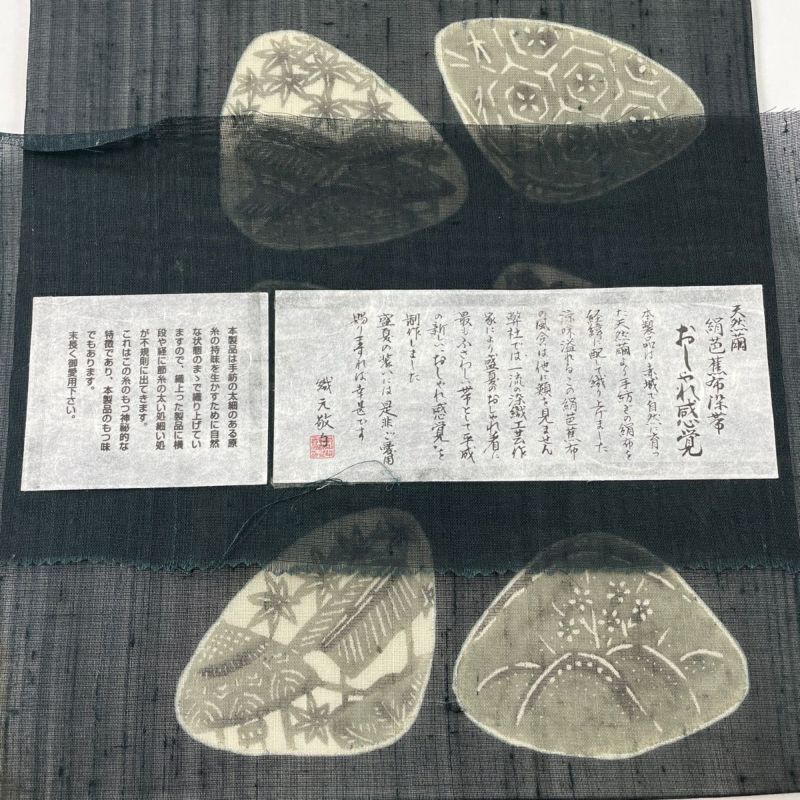 天然繭
絹芭蕉布染帯
おしゃれ感覚
本製品は赤城で自然に育っ
た天然繭より手紡ぎの絹布を
経緯に配して織り上げました
涼味溢れるこの絹芭蕉布
の風合は他に類を見ません
弊社では一流の染織工芸作
家により盛夏のおしゃれ着に
最もふさわしい帯として平成
の新しいおしゃれ感覚を
制作しました
盛夏の装いには是非ご着用
賜りますれば幸甚です
織元敬白
本製品は手紡の太細のある原
糸の持味を生かすために自然
な状態のまゝで織り上げてい
ますので、織上った製品に横
段や経に節糸の太い処細い処
が不規則に出てきます。
これはこの糸のもつ神秘的な
特徴であり、本製品のもつ味
でもあります。
末長く御愛用下さい。